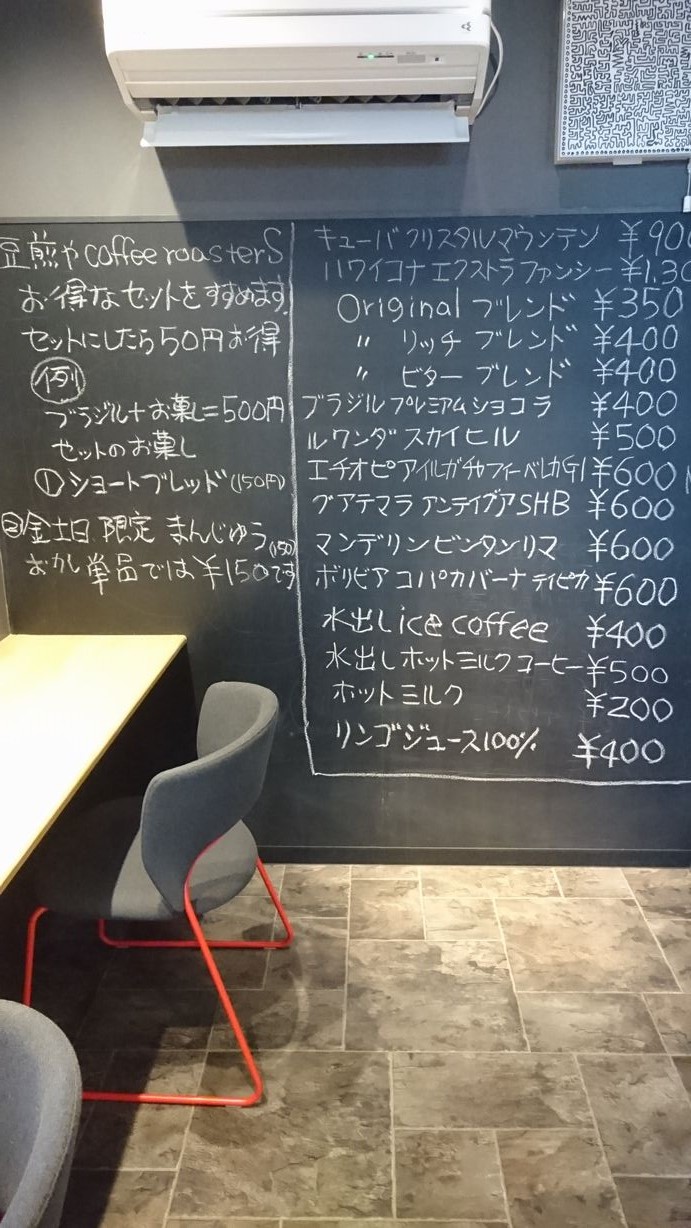 豆煎や coffee roasterS
お得なセットをすすめます。
セットにしたら50円お得
例
ブラジル+お菓し=500円
セットのお菓し
①ショートブレッド(150円)
②金土日限定 まんじゅう(150)
おかし単品では¥150です
キューバクリスタルマウンテン ¥900
ハワイコナエクストラファンシー ¥1.30
Original ブレンド ¥350
〃 リッチ ブレンド ¥400
〃 ビター ブレンド ¥400
ブラジルプレミアムショコラ ¥400
ルワンダスカイヒル ¥500
エチオピアイルガチャフィーベレカG1 ¥600
グアテマラ アンティグアSHB ¥600
マンデリンビンタンリマ ¥600
ボリビア コパカバーナ ティピカ ¥600
水出しice coffee ¥400
水出しホットミルクコーヒー ¥500
ホットミルク ¥200
リンゴジュース100% ¥400